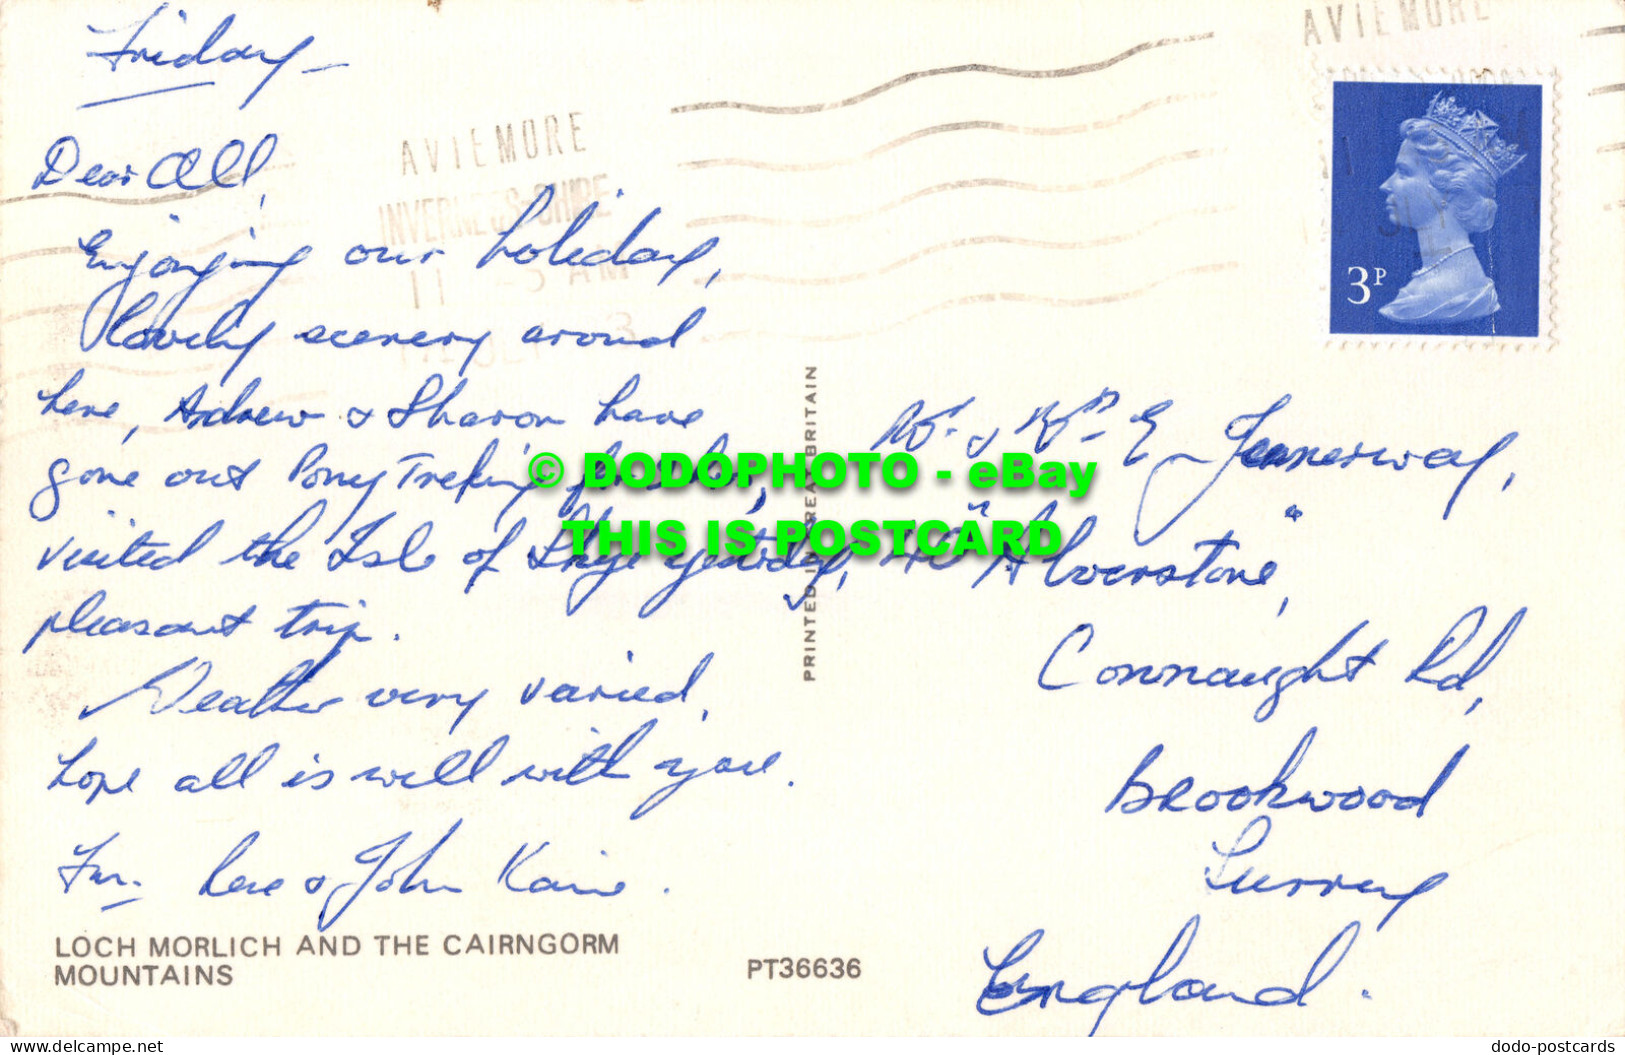 Friday
AVIEMORE
INVERNESS-SHIRE
AVIEMORE
3P
Dear All,
Enjoying our holiday,
lovely scenery around
here, Andrew & Sharon have
gone out Pony Treking
visited the Isle of Skye yesterday,
pleasant trip.
Weather very varied,
hope all is well with you.
John
LOCH MORLICH AND THE CAIRNGORM
MOUNTAINS
PT36636
PRINTED IN GREAT BRITAIN
Mr. & Mrs E Jennerway,
"Alverstone",
Connaught Rd,
Brookwood
Surrey
England.
© DODOPHOTO - eBay
THIS IS POSTCARD
www.delcampe.net
dodo-postcards